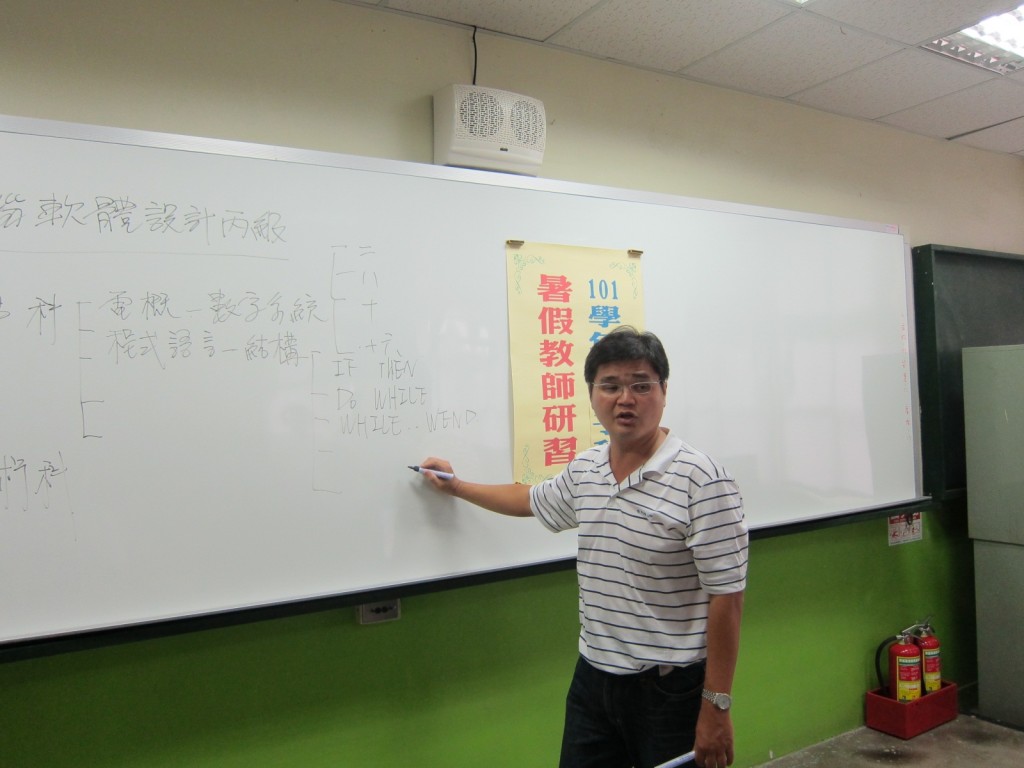 軟體設計丙級
科
電概－數字系統
程式語言－結構
二
八
十
十六
IF THEN
DO WHILE
WHILE..WEND
術科
101學
暑假教師研習